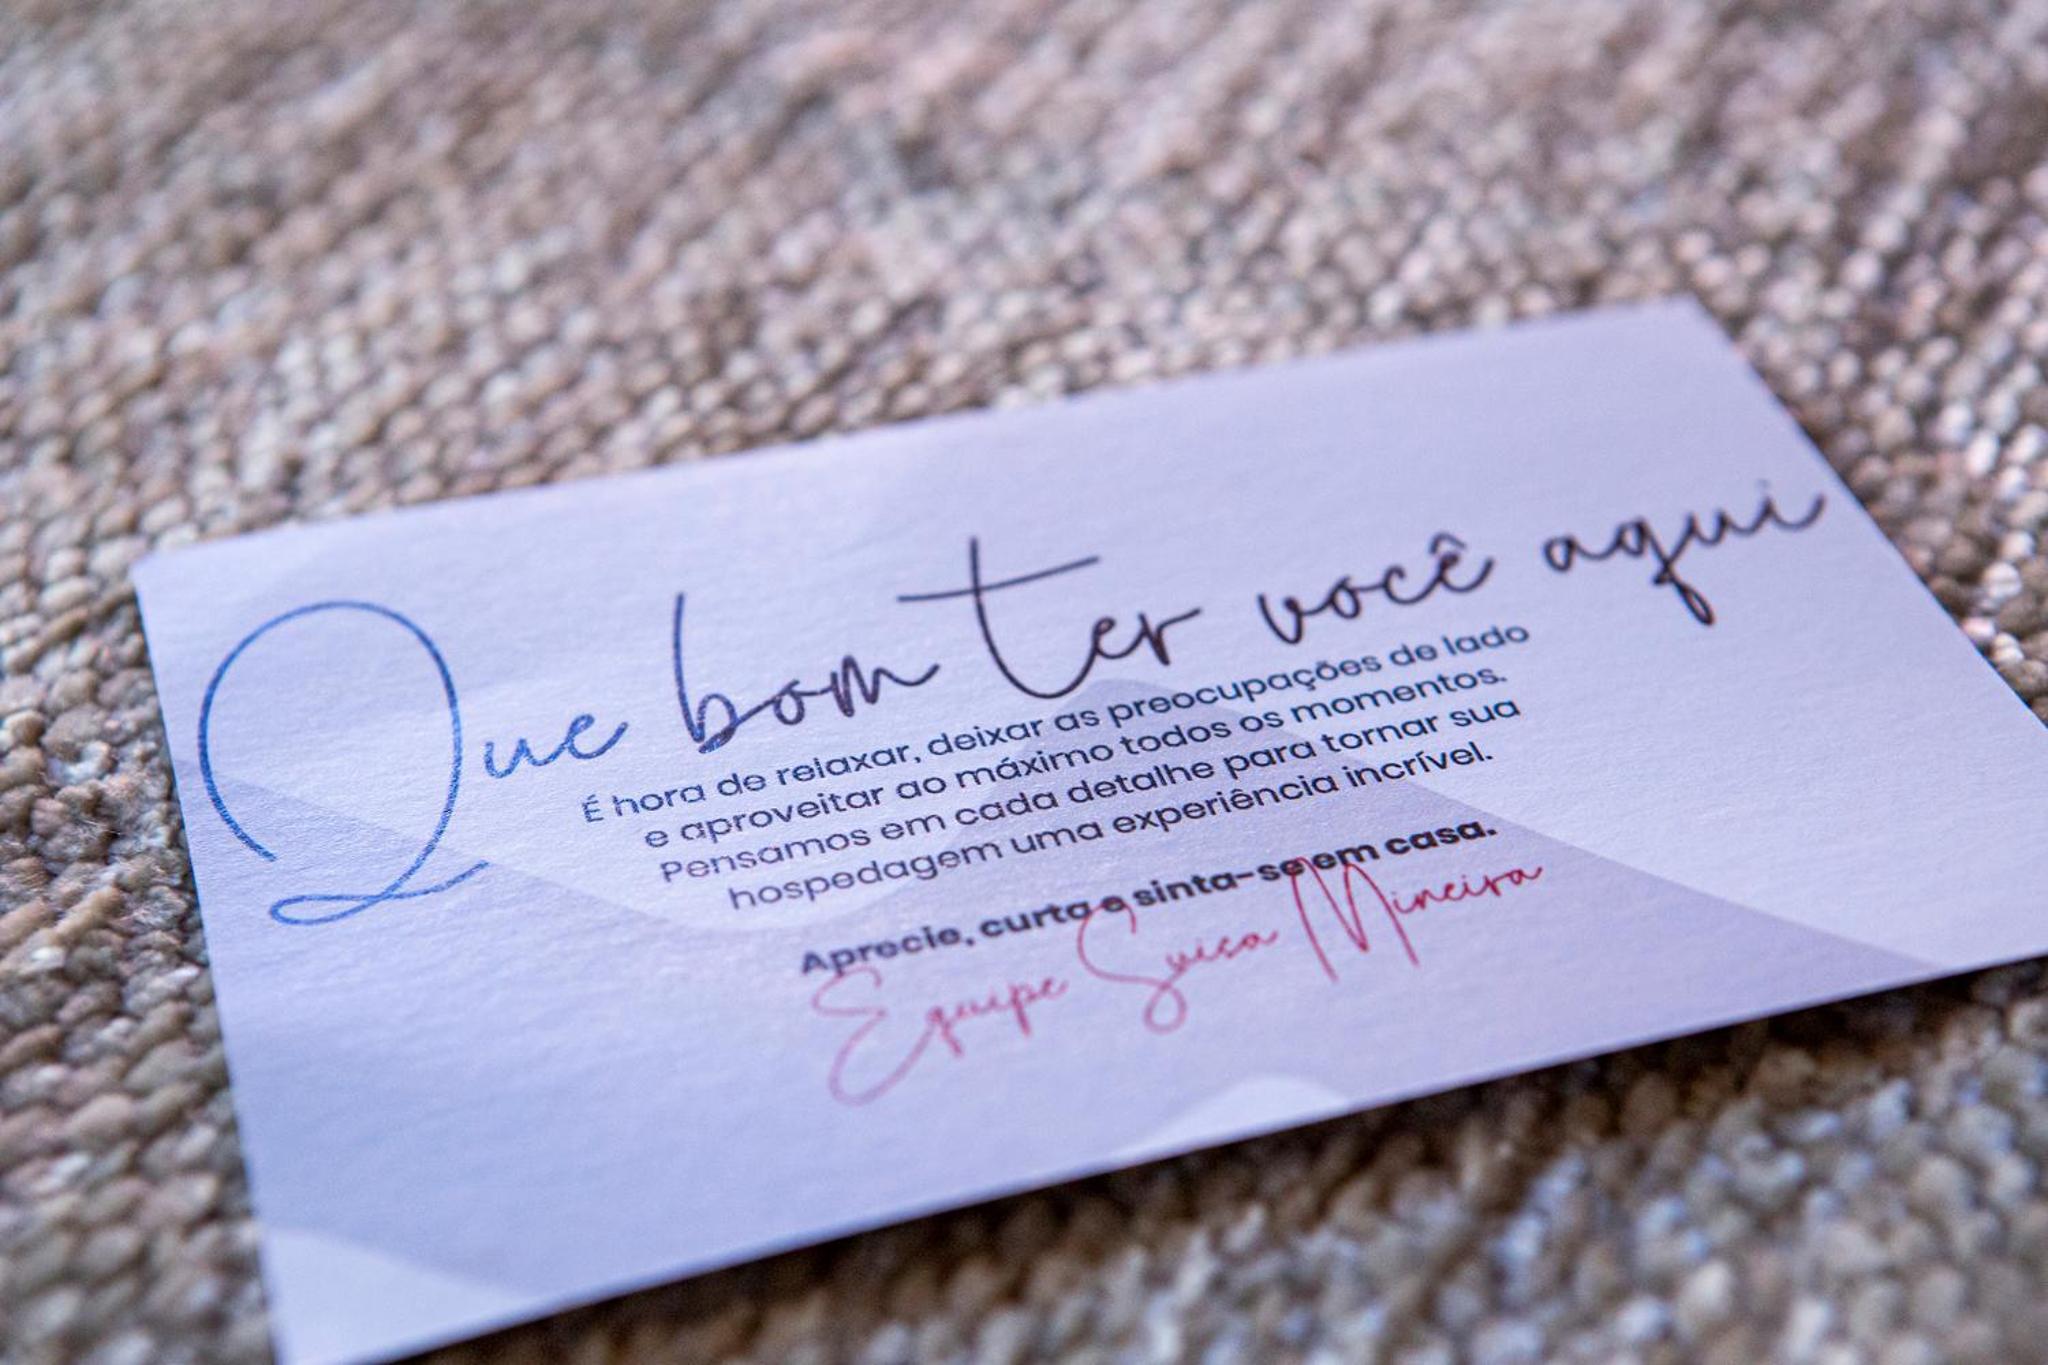 Que bom ter você aqui
É hora de relaxar, deixar as preocupações de lado
e aproveitar ao máximo todos os momentos.
Pensamos em cada detalhe para tornar sua
hospedagem uma experiência incrível.
Aprecie, curta e sinta-se em casa.
Equipe Suisa Mineira